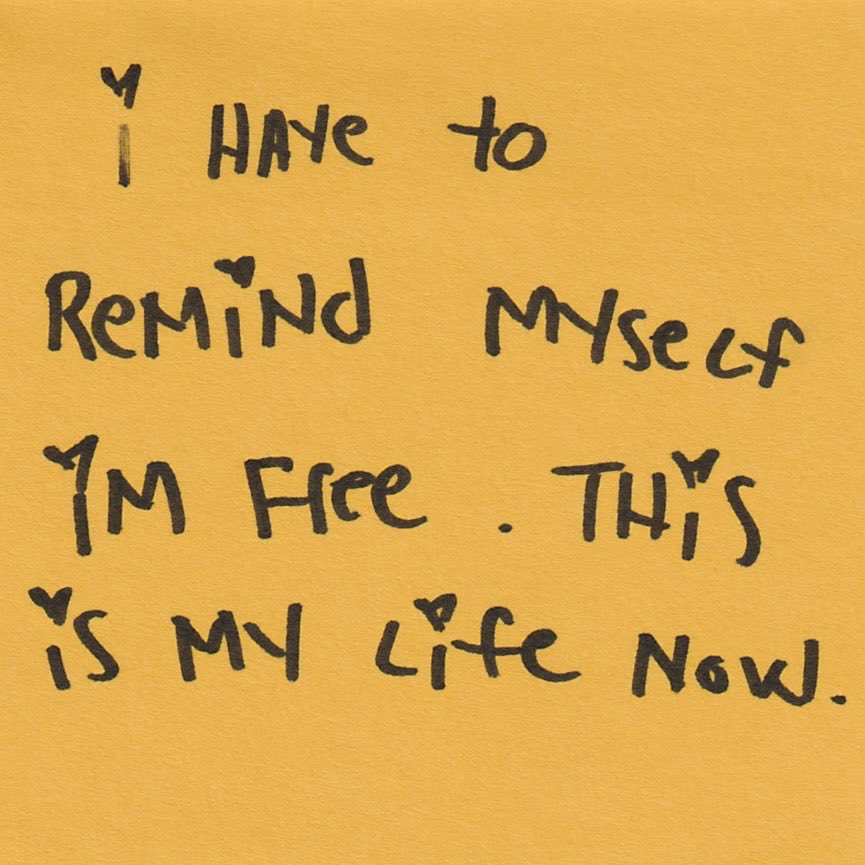 i HAVe to
ReMiNd MYself
iM Free. THiS
iS MY Life Now.